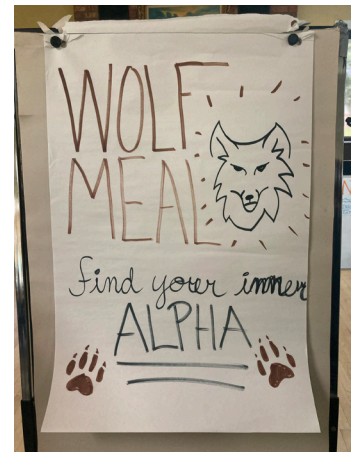 WOLF
MEAL
find your inner
ALPHA